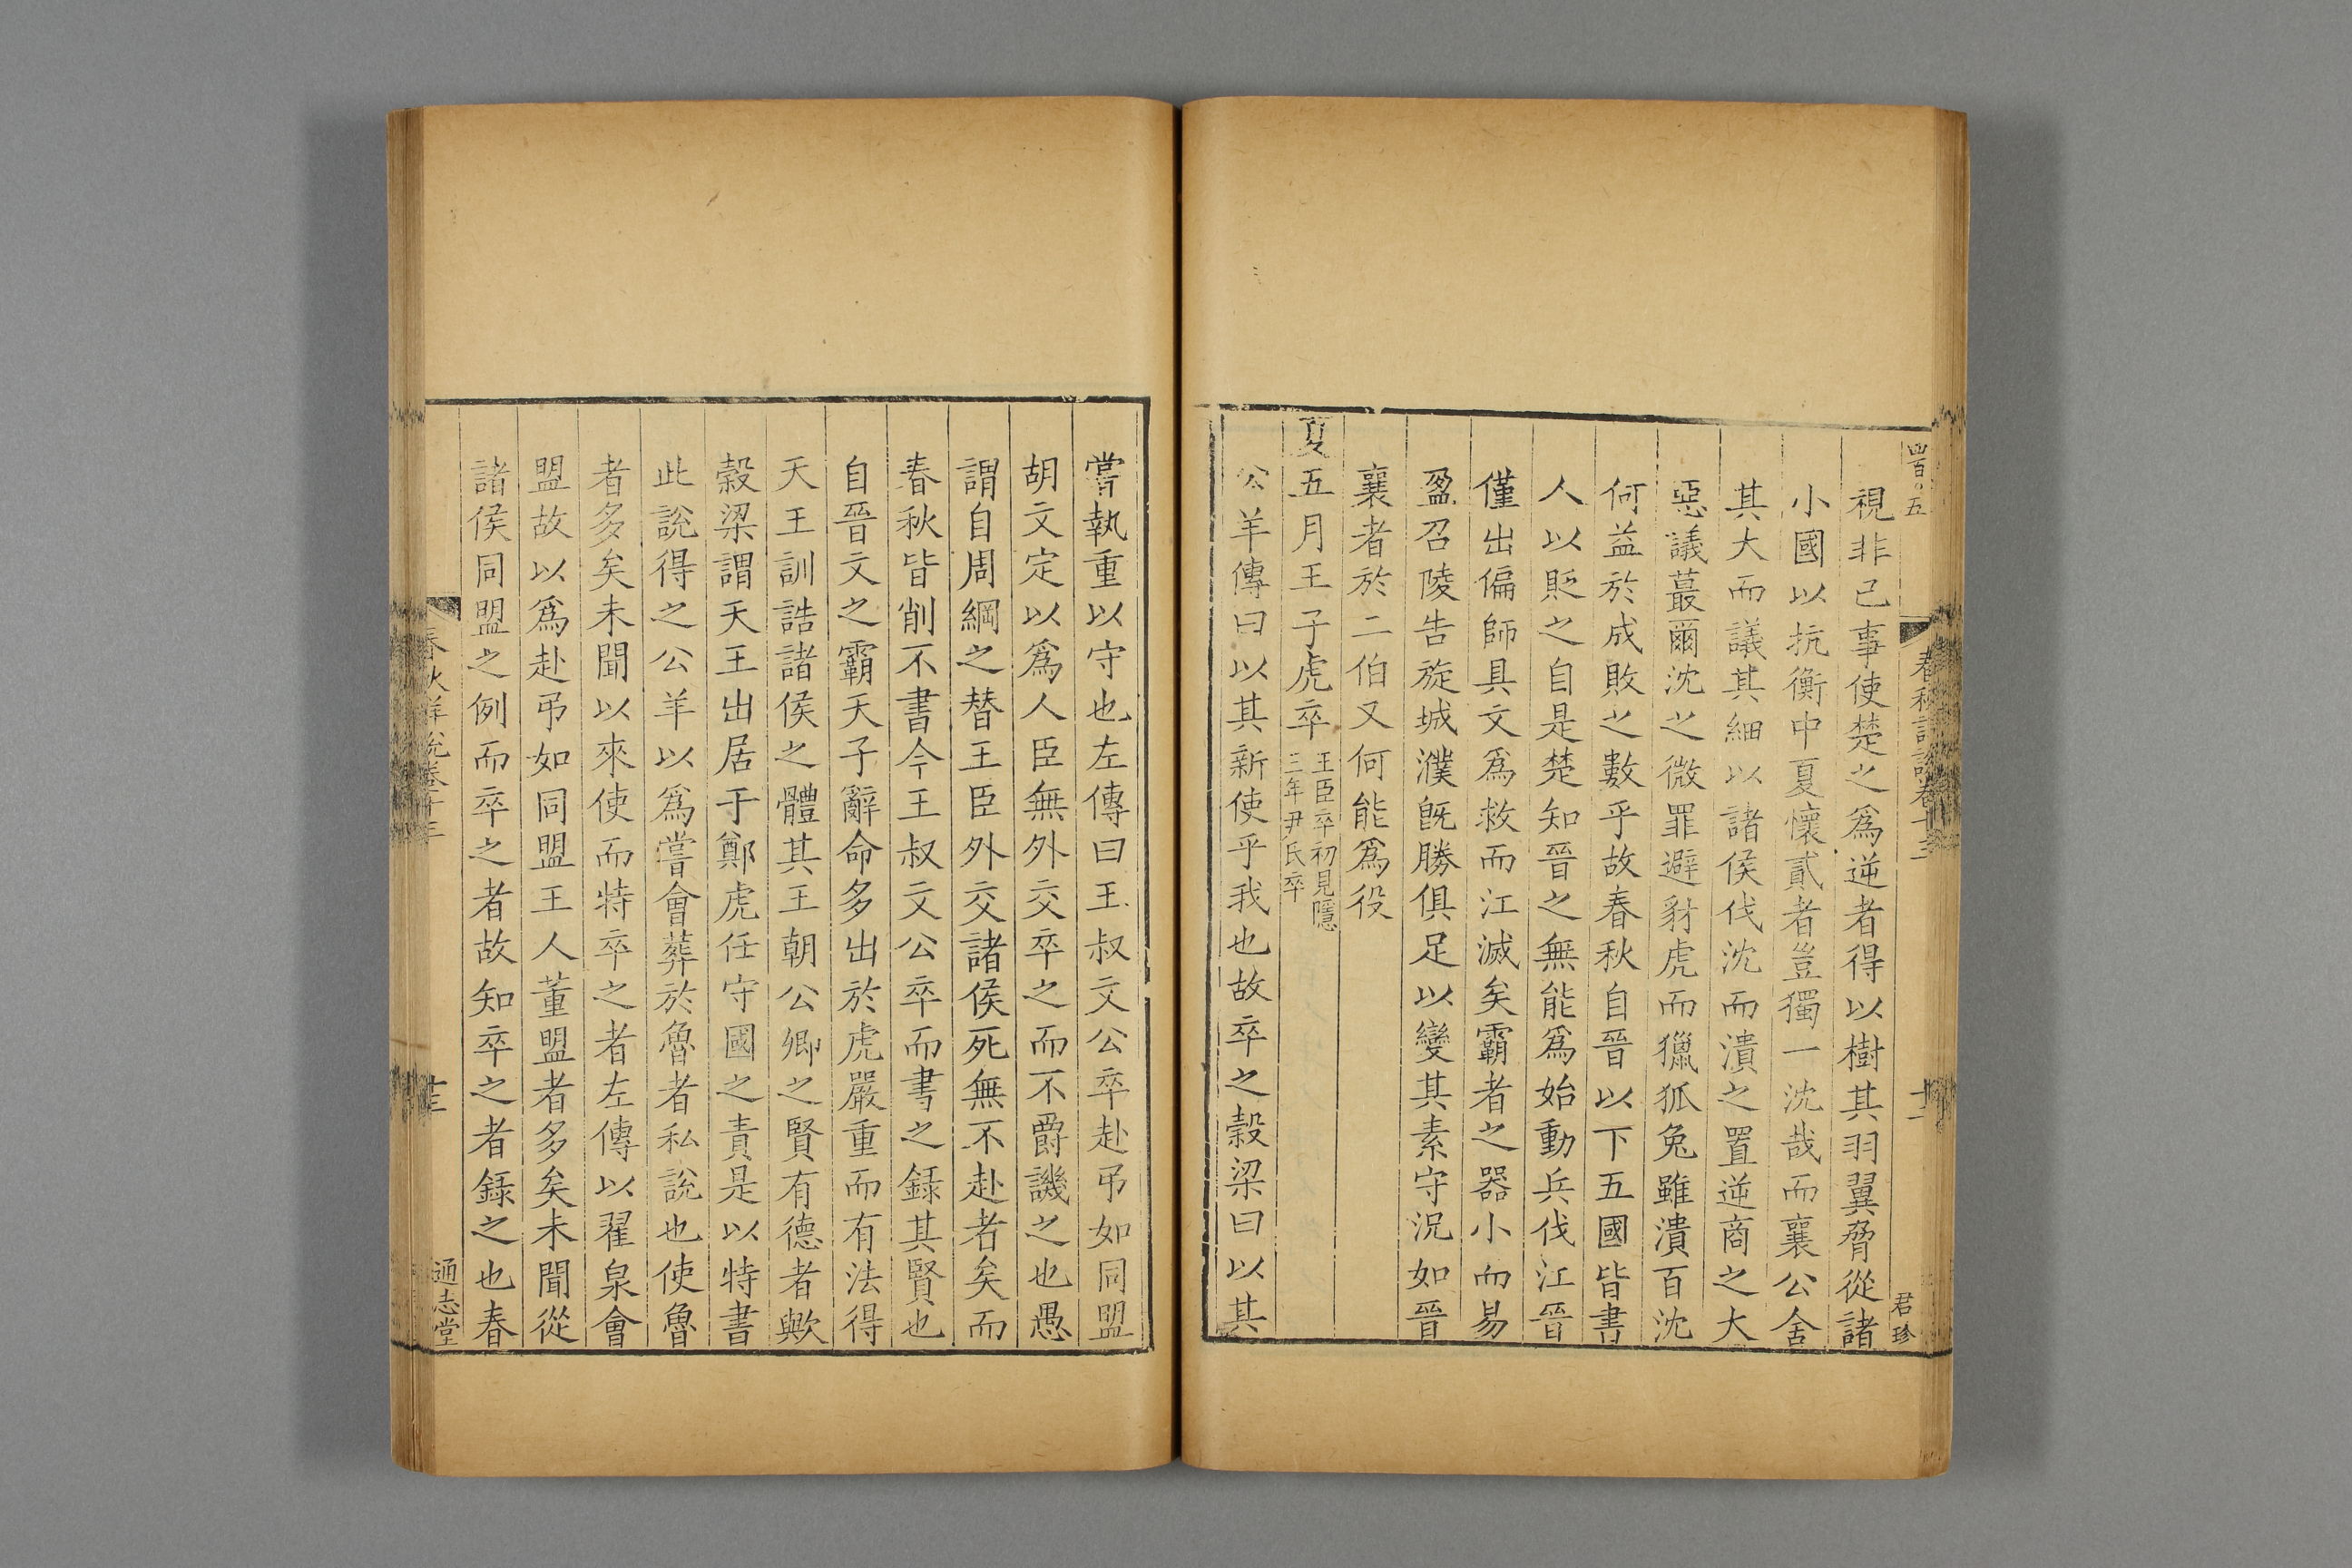 四百〇五
君珍
視非己事使楚之爲逆者得以樹其羽翼脅從諸
小國以抗衡中夏懷貳者豈獨一沈哉而襄公舍
其大而議其細以諸侯伐沈而潰之置逆商之大
惡議蕞爾沈之微罪避豺虎而獵狐兔雖潰百沈
何益於成敗之數乎故春秋自晉以下五國皆書
人以貶之自是楚知晉之無能爲始動兵伐江晉
僅出偏師具文爲救而江滅矣霸者之器小而易
盈召陵告旋城濮旣勝俱足以變其素守況如晉
襄者於二伯又何能爲役
夏五月王子虎卒王臣卒初見隱三年尹氏卒
公羊傳曰以其新使乎我也故卒之穀梁曰以其
嘗執重以守也左傳曰王叔文公卒赴弔如同盟
胡文定以爲人臣無外交卒之而不爵譏之也愚
謂自周綱之替王臣外交諸侯死無不赴者矣而
春秋皆削不書今王叔文公卒而書之録其賢也
自晉文之霸天子辭命多出於虎嚴重而有法得
天王訓誥諸侯之體其王朝公卿之賢有德者歟
穀梁謂天王出居于鄭虎任守國之責是以特書
此說得之公羊以爲嘗會葬於魯者私說也使魯
者多矣未聞以來使而特卒之者左傳以翟泉會
盟故以爲赴弔如同盟王人董盟者多矣未聞從
諸侯同盟之例而卒之者故知卒之者録之也春
通志堂